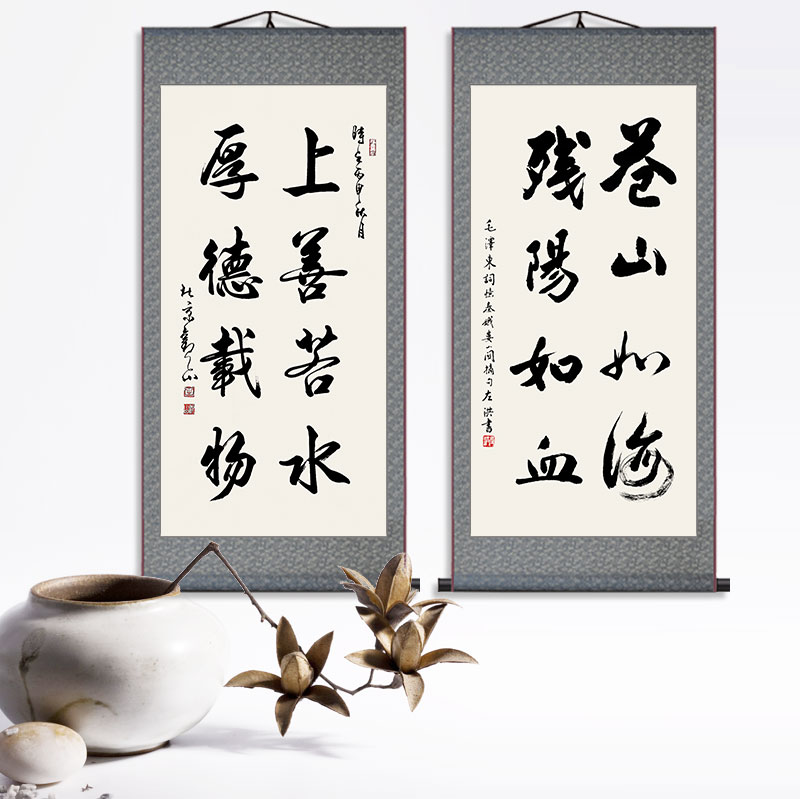 時在丙申秋月
上善若水
厚德載物
苍山如海
残陽如血
毛澤東詞憶秦娥婁山関摘句左洪書